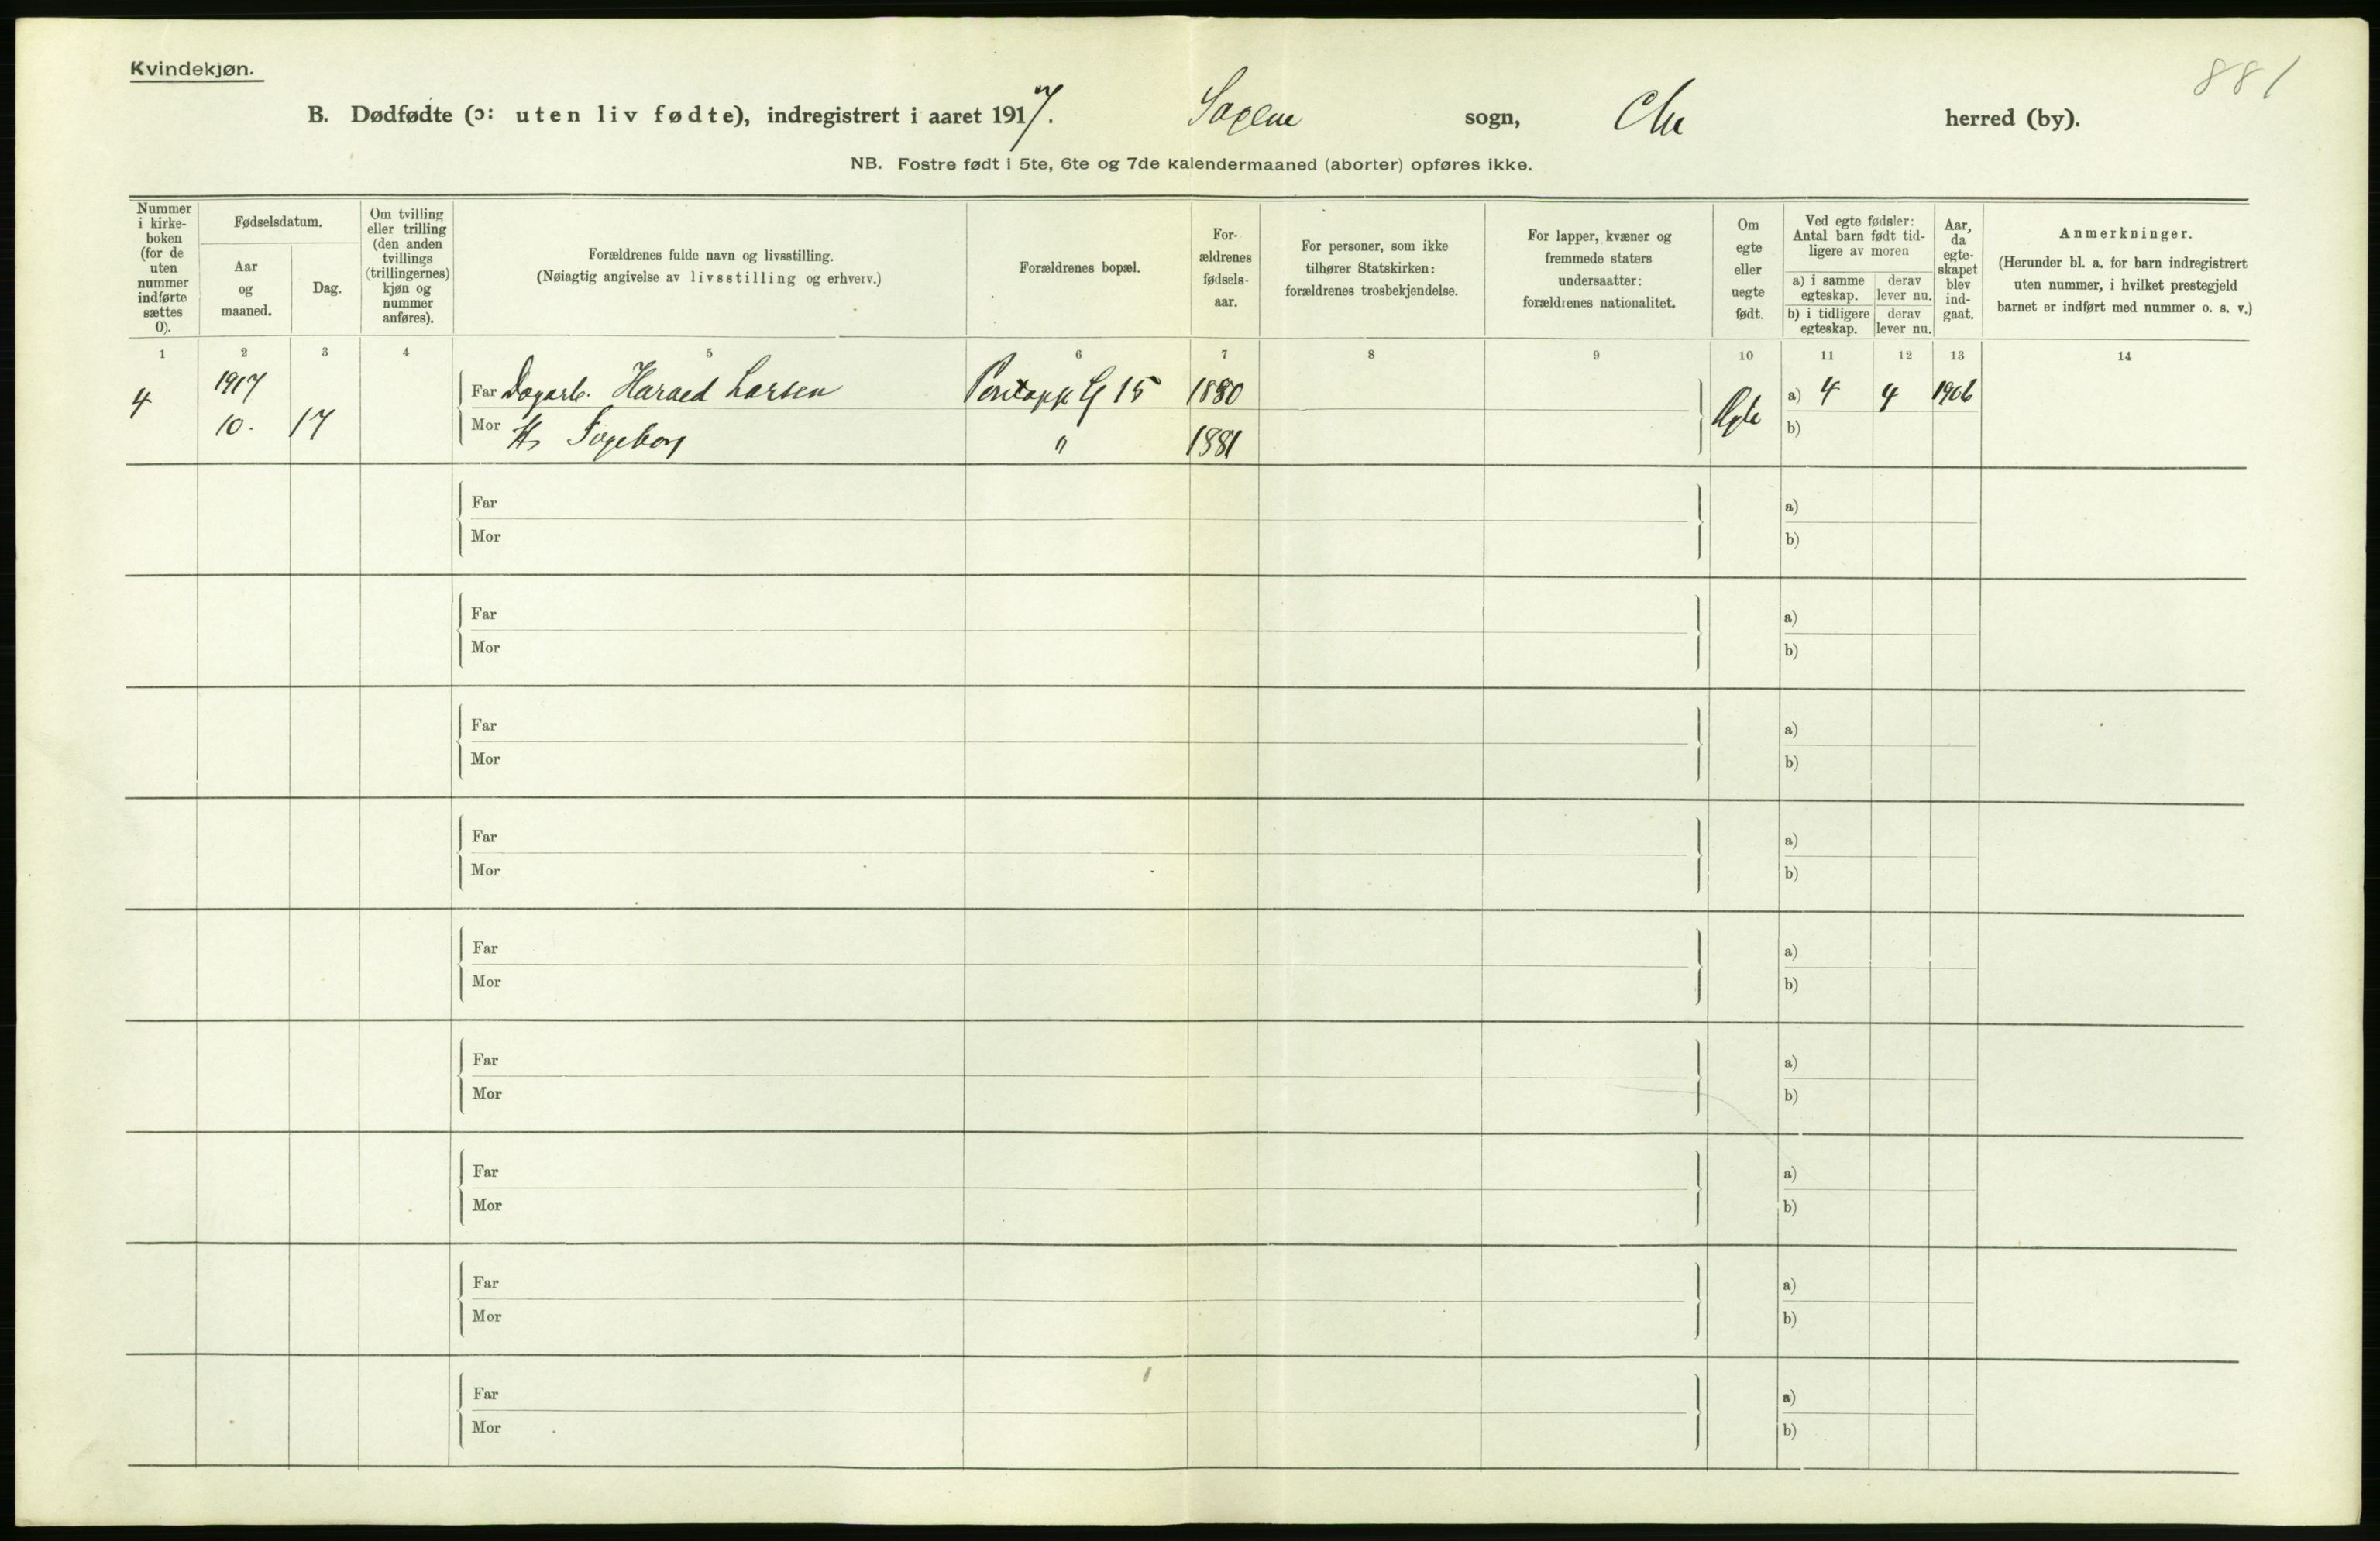 Kvindekjøn.
881
B. Dødfødte (ɔ: uten liv fødte), indregistrert i aaret 1917. Sagene sogn, Chr herred (by).
NB. Fostre født i 5te, 6te og 7de kalendermaaned (aborter) opføres ikke.
Nummer
i kirke-
boken
(for de
uten
nummer
indførte
sættes
0).
Fødselsdatum.
Aar
og
maaned.
Dag.
Om tvilling
eller trilling
(den anden
tvillings
(trillingernes)
kjøn og
nummer
anføres).
Forældrenes fulde navn og livsstilling.
(Nøiagtig angivelse av livsstilling og erhverv.)
Forældrenes bopæl.
For-
ældrenes
fødsels-
aar.
For personer, som ikke
tilhører Statskirken:
forældrenes trosbekjendelse.
For lapper, kvæner og
fremmede staters
undersaatter:
forældrenes nationalitet.
Om
egte
eller
uegte
født.
Ved egte fødsler:
Antal barn født tid-
ligere av moren
a) i samme
egteskap.
derav
lever nu.
b) i tidligere
egteskap.
derav
lever nu.
Aar,
da
egte-
skapet
blev
ind-
gaat.
Anmerkninger.
(Herunder bl. a. for barn indregistrert
uten nummer, i hvilket prestegjeld
barnet er indført med nummer o. s. v.)
1 2 3 4 5 6 7 8 9 10 11 12 13 14
4 1917 Far Dagarb. Harald Larsen G 15 1880 Egte a) 4 4 1906
10. 17 Mor H. Ingeborg " 1881 b)
Far a)
Mor b)
Far a)
Mor b)
Far a)
Mor b)
Far a)
Mor b)
Far a)
Mor b)
Far a)
Mor b)
Far a)
Mor b)
Far a)
Mor b)
Far a)
Mor b)